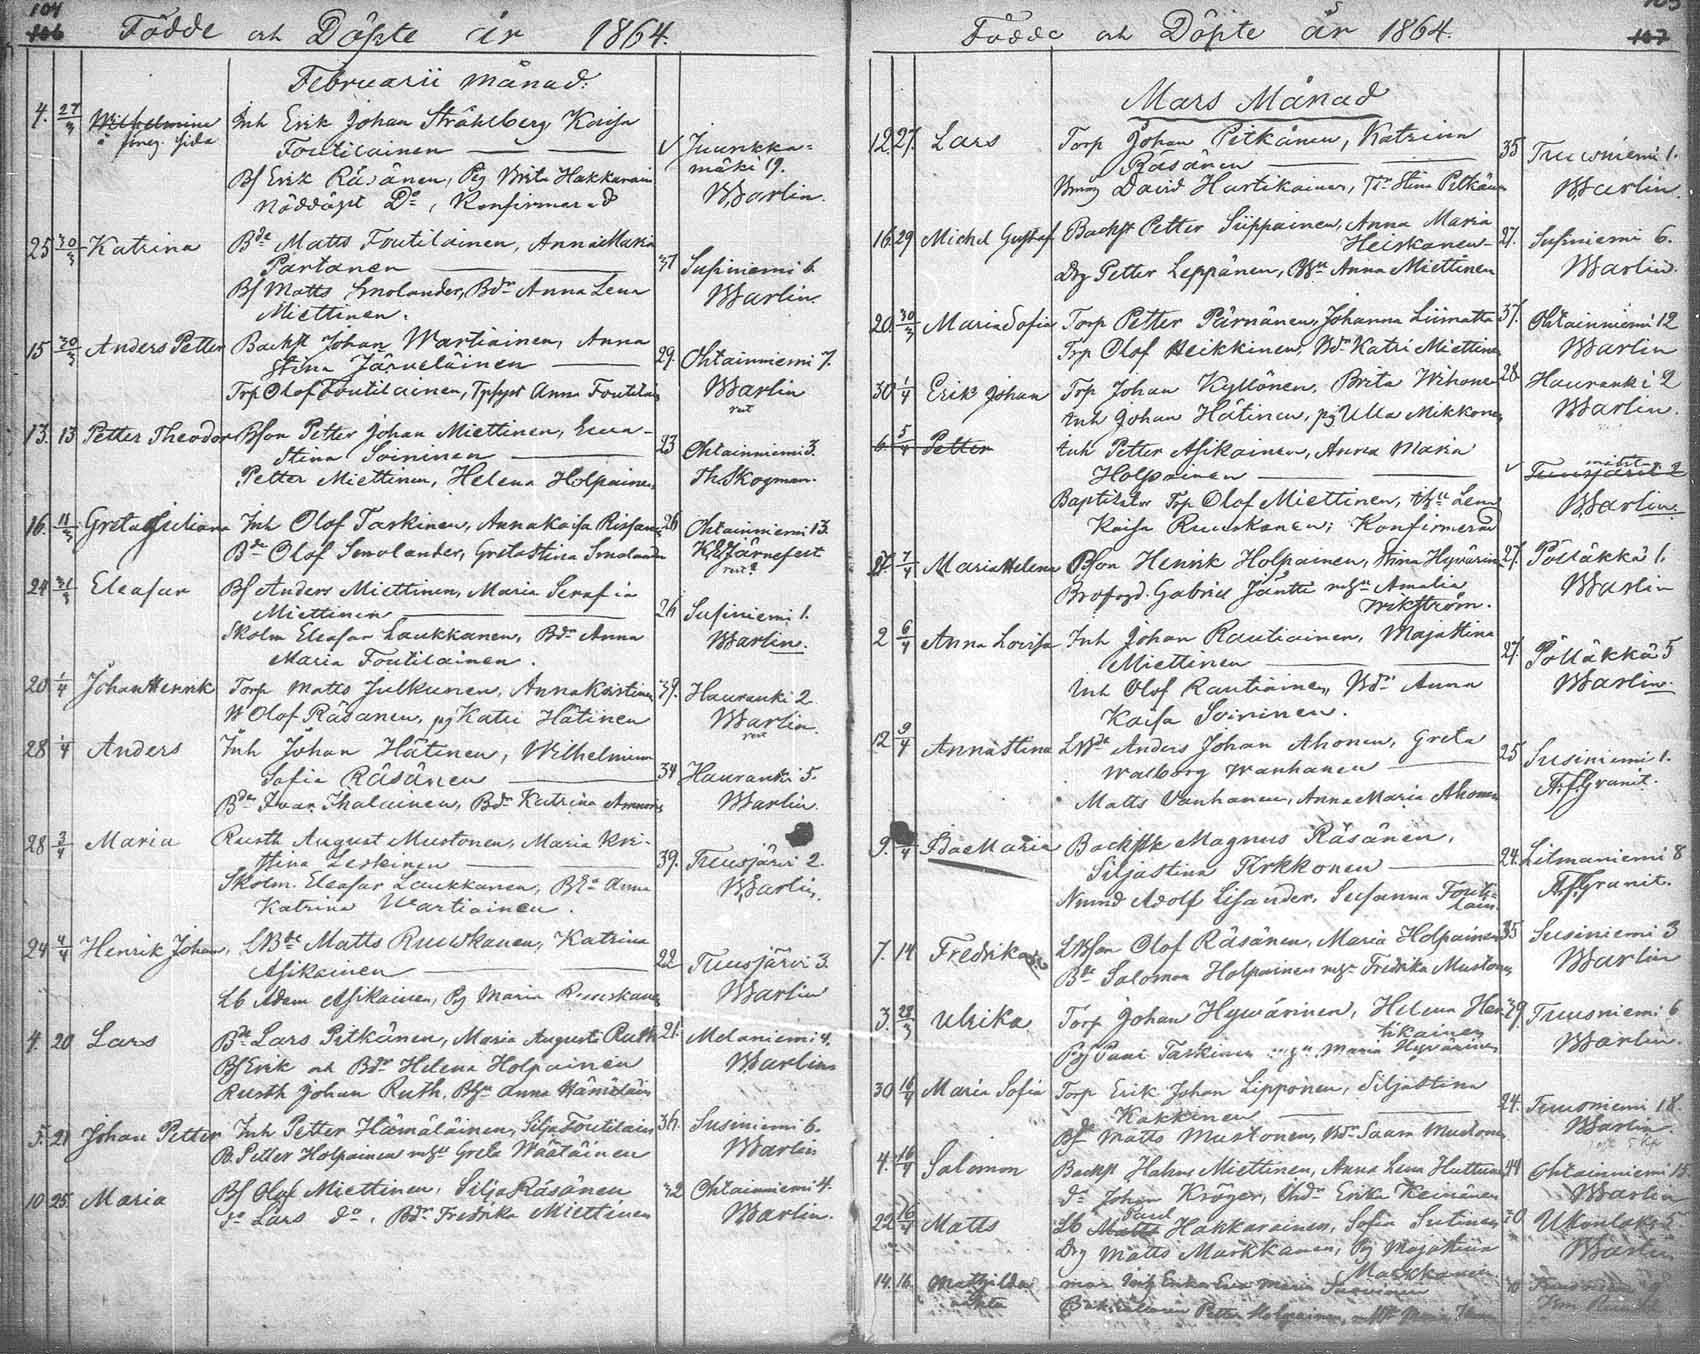 104
106
Födde och Döpte år 1864.
Februarii månad.
4. 27/3 Wilhelmina Inh Erik Johan Stråhlberg Kaisa
å föreg. sida Foutilainen Juurikka-
mäki 19.
Bf Erik Räsänen, Pig Brita Hakkarain Warlin.
Nöddöpt Do, Konfirmerad
25 30/3 Katrina Bde Matts Foutilainen, Anna Maria
Partanen 37 Susiniemi 6.
Bf Matts Smolander, Bdr Anna Lena Warlin.
Miettinen.
15 30/3 Anders Petter Backst Johan Wartiainen, Anna
Stina Järveläinen 29. Ohtainniemi 7.
Trp Olof Foutilainen, Anna Foutilain Warlin
13. 13 Petter Theodor Bson Petter Johan Miettinen, Eva
Stina Soininen 23 Ohtainniemi 3.
Petter Miettinen, Helena Holpainen Th. Skogman.
16. 11/3 Greta Juliana Inh Olof Taskinen, Anna Kaisa Rissanen 26 Ohtainniemi 13.
Bde Olof Smolander, Greta Stina Smolander Järnefelt
24 31/3 Eleasar Bf Anders Miettinen, Maria Serafia
Miettinen 26 Susiniemi 1.
Skolm Eleasar Laukkanen, Bdr Anna Warlin.
Maria Foutilainen.
20 1/4 Johan Henrik Torp Matts Julkunen, Anna Kristina 39. Hauranki 2
Olof Räsänen, pig Katri Hätinen Warlin.
28 1/4 Anders Inh Johan Hätinen, Wilhelmina
Sofia Räsänen 34 Hauranki 5.
Bde Ivar Ihalainen, Bdr Katrina Warlin.
28 3/4 Maria Rusth August Mustonen, Maria Kri-
stina Leskinen 39. Tuusjärvi 2.
Skolm. Eleasar Laukkanen, Bdr Anna Warlin.
Katrina Wartiainen.
24 4/4 Henrik Johan, LBde Matts Ruuskanen, Katrina
Asikainen 22 Tuusjärvi 3.
Lb Adam Asikainen, Pig Maria Ruuskanen Warlin
4. 20 Lars Bde Lars Pitkänen, Maria Augusta Ruth 21. Melaniemi 4.
Bf Erik och Bdr Helena Holpainen Warlin
Rusth Johan Ruth, Anna Hämäläin
5. 21 Johan Petter Inh Petter Hämäläinen, Silja Foutilain 36. Susiniemi 6.
B. Petter Holpainen Greta Wäätäinen Warlin
10 25. Maria Bf Olof Miettinen, Silja Räsänen 32 Ohtainniemi 4.
do Lars do, Bdr Fredrika Miettinen Warlin.
105
107
Födde och Döpte år 1864.
Mars Månad
12 27. Lars Torp Johan Pitkänen, Katrina
Räsänen 35 Tuusniemi 1.
David Hartikainen, Stina Pitkänen Warlin.
16. 29 Michel Gustaf Backst Petter Siippainen, Anna Maria
Heiskanen 27. Susiniemi 6.
Drg Petter Leppänen, Anna Miettinen Warlin.
20. 30/3 Maria Sofia Torp Petter Pärnänen, Johanna Liimatta 37. Ohtainniemi 12
Trp Olof Heikkinen, Katri Miettinen Warlin
30 1/4 Erik Johan Torp Johan Kyllönen, Brita Wihonen 28 Hauranki 2
Inh Johan Hätinen, pig Ulla Mikkonen Warlin.
6. 5/4 Petter Inh Petter Asikainen, Anna Maria
Holpainen Tuusjärvi 2
Trp Olof Miettinen, Lena Warlin.
Kaisa Ruuskanen; Konfirmerad
27. 7/4 Maria Helena Bson Henrik Holpainen, Stina Hyvärin 27. Pölläkkä 1.
Gabriel Jäntti Amalia Warlin
Wikström.
2 6/4 Anna Lovisa Inh Johan Rautiainen, Maja Stina
Miettinen 27. Pölläkkä 5
Inh Olof Rautiainen, Anna Warlin.
Kaisa Soininen.
12 9/4 Anna Stina Anders Johan Ahonen, Greta
Walborg Wanhanen 25 Susiniemi 1.
Matts Vanhanen, Anna Maria Ahonen A.f.Granit.
9. Ida Maria Backst Magnus Räsänen,
Silja Stina Kirkkonen 24. Litmaniemi 8
Nmnd Adolf Lisander, Susanna Fouti- A.f.Granit.
lain.
7. 14 Fredrika Olof Räsänen, Maria Holpainen 35 Susiniemi 3
Bde Salomon Holpainen Fredrika Mustonen Warlin
3. 28/3 Ulrika Torp Johan Hyvärinen, Helena Har- 39. Tuusniemi 6
tikainen
Paul Taskinen Maria Hyvärinen Warlin.
30 16/4 Maria Sofia Torp Erik Johan Lipponen, Silja Stina
Kakkinen 24. Tuusniemi 18.
Bde Matts Mustonen, Bdr Saara Mustonen Warlin.
4. 16/4 Salomon Backst Hahns Miettinen, Anna Lena Huttunen 44 Ohtainniemi 15
do Johan Kröger, Erika Keinänen Warlin
22 16/4 Matts Lb Paul Hakkarainen, Sofia Sutinen 30 Ukonlaks 5.
Drg Matts Markkanen, Pig Maja Stina Warlin
Markkanen
14. 16. Mathilda Maria
Petter Holpainen,